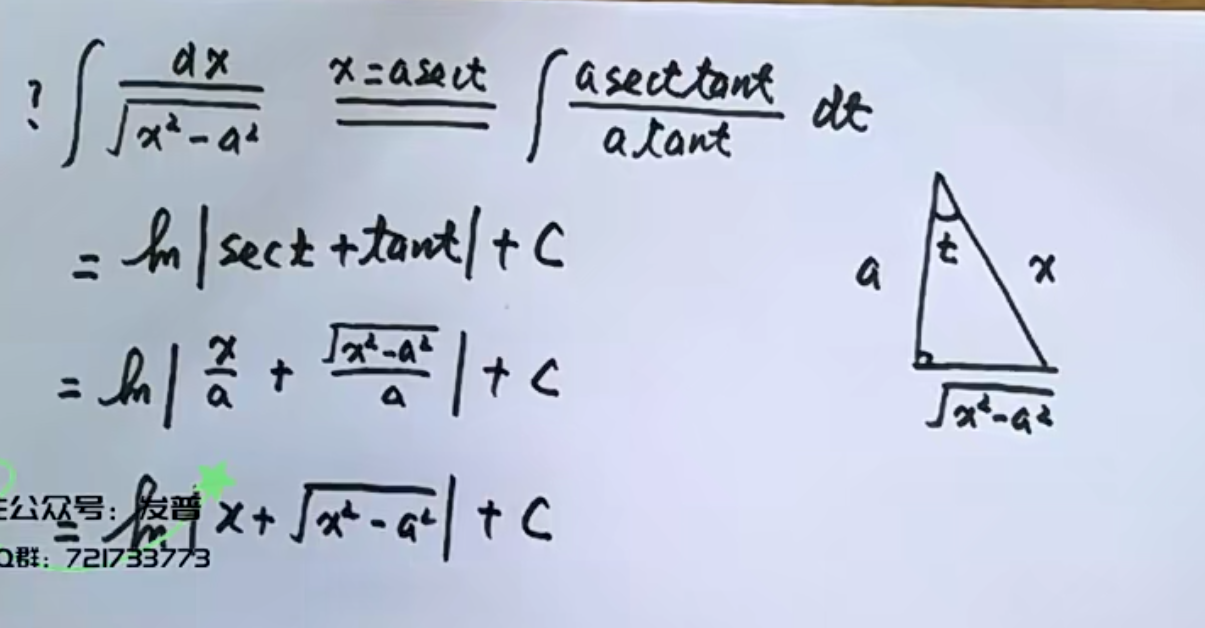 ? ∫ dx/√(x²-a²) x=asect ∫ asect tant / atant dt
= ln|sect+tant|+C
a t x
= ln|x/a + √(x²-a²)/a|+C
√(x²-a²)
= ln|x+√(x²-a²)|+C
公众号：发普
Q群：721733773